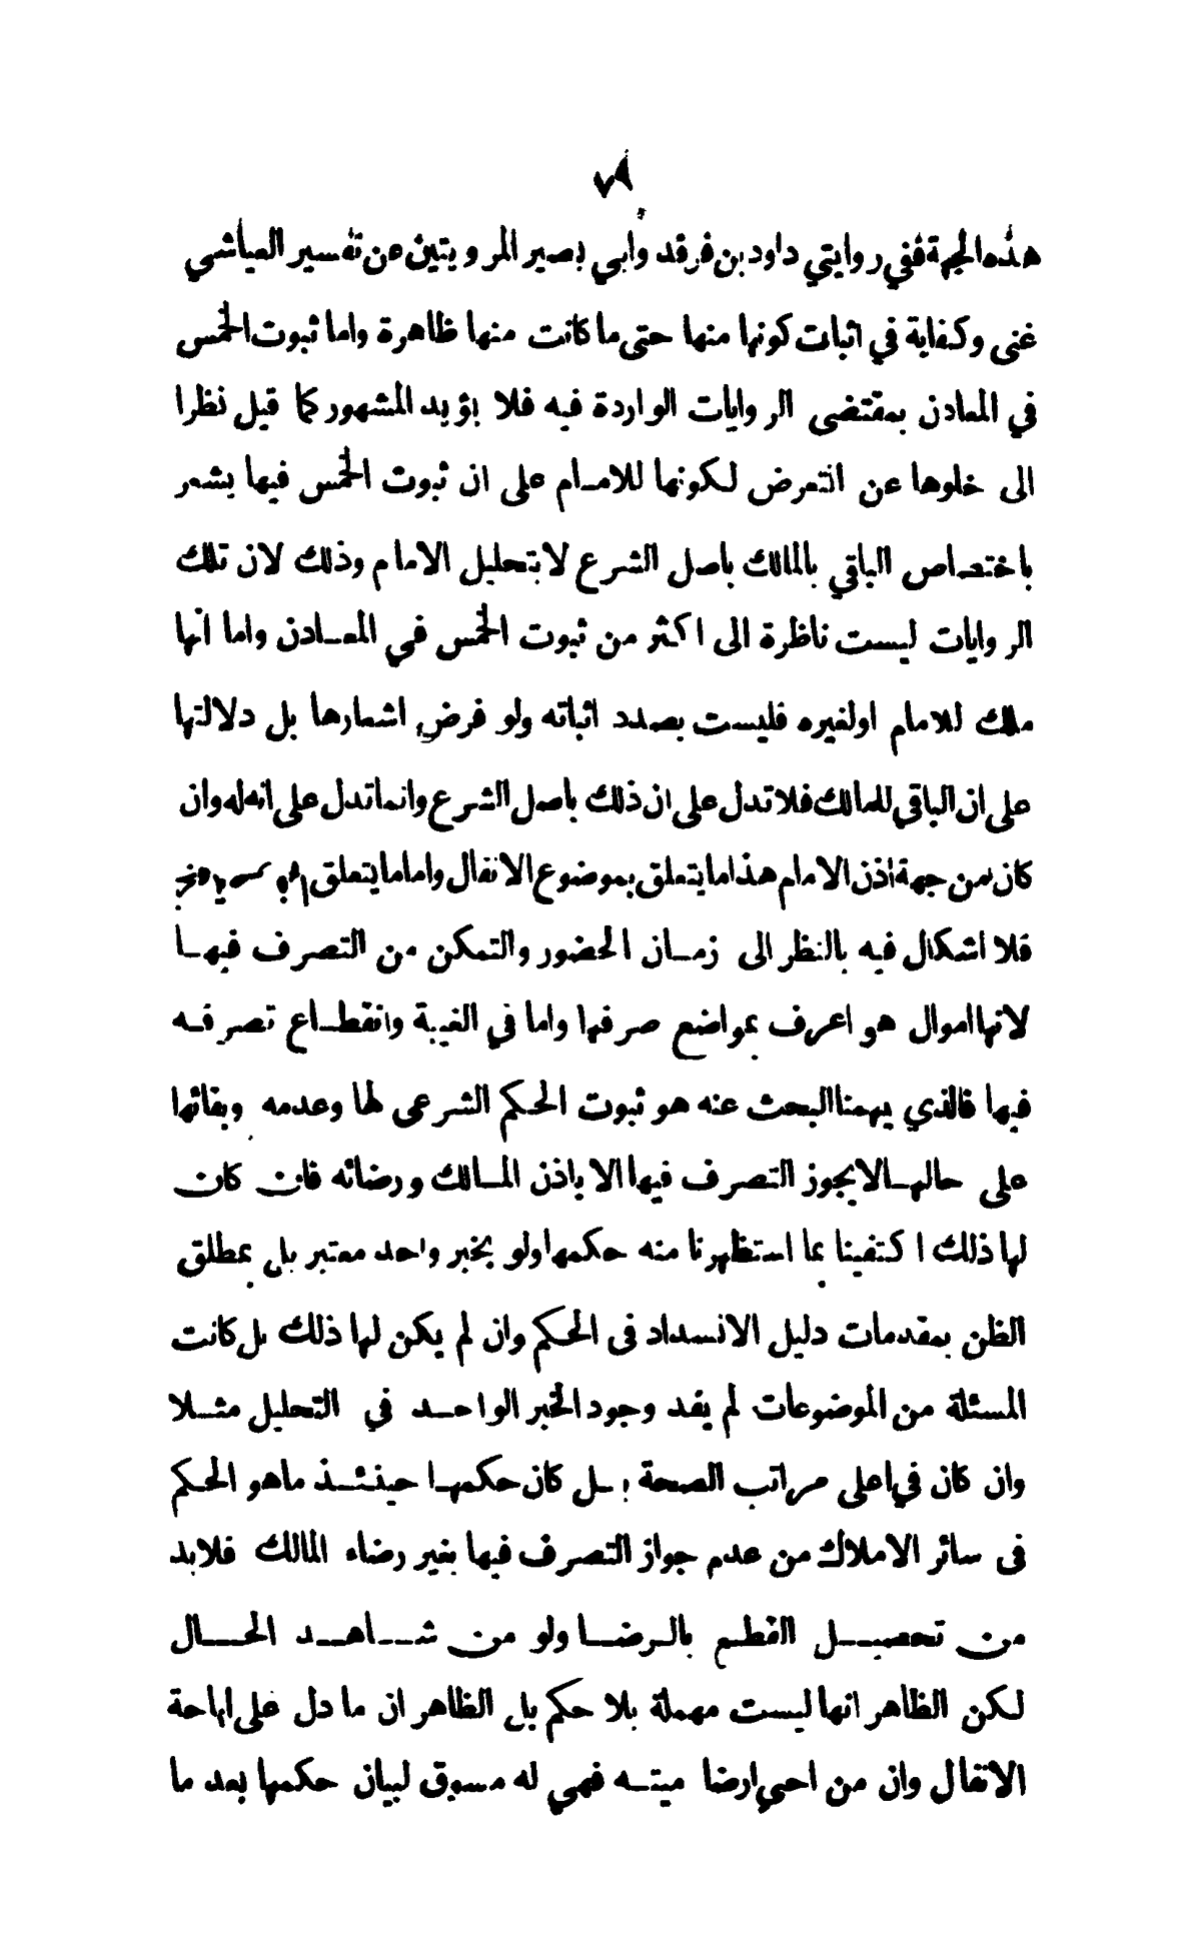 ٧٩
هذه الجهة ففي روايتي داود بن فرقد وأبي بصير المرويتين عن تفسير العياشي
غنى وكفاية في اثبات كونها منها حتى ما كانت منها ظاهرة واما ثبوت الخمس
في المعادن بمقتضى الروايات الواردة فيه فلا يؤيد المشهور كما قيل نظرا
الى خلوها عن التعرض لكونها للامام على ان ثبوت الخمس فيها يشعر
باختصاص الباقي بالمالك باصل الشرع لا بتحليل الامام وذلك لان تلك
الروايات ليست ناظرة الى اكثر من ثبوت الخمس في المعادن واما انها
ملك للامام اولغيره فليست بصدد اثباته ولو فرض اشعارها بل دلالتها
على ان الباقي للمالك فلا تدل على ان ذلك باصل الشرع وانما تدل على انه له وان
كان من جهة اذن الامام هذا ما يتعلق بموضوع الانفال واما ما يتعلق
فلا اشكال فيه بالنظر الى زمان الحضور والتمكن من التصرف فيها
لانها اموال هو اعرف بمواضع صرفها واما في الغيبة وانقطاع تصرفه
فيها فالذي يهمنا البحث عنه هو ثبوت الحكم الشرعي لها وعدمه وبقائها
على حالها لا يجوز التصرف فيها الا باذن المالك ورضائه فان كان
لها ذلك اكتفينا بما استظهرنا منه حكمها ولو بخبر واحد معتبر بل بمطلق
الظن بمقدمات دليل الانسداد في الحكم وان لم يكن لها ذلك بل كانت
المسئلة من الموضوعات لم يفد وجود الخبر الواحد في التحليل مثلا
وان كان في اعلى مراتب الصحة بل كان حكمها حينئذ ماهو الحكم
في سائر الاملاك من عدم جواز التصرف فيها بغير رضاء المالك فلابد
من تحصيل القطع بالرضا ولو من شاهد الحال
لكن الظاهر انها ليست مهملة بلا حكم بل الظاهر ان ما دل على اباحة
الانفال وان من احي ارضا ميتة فهي له مسوق لبيان حكمها بعد ما